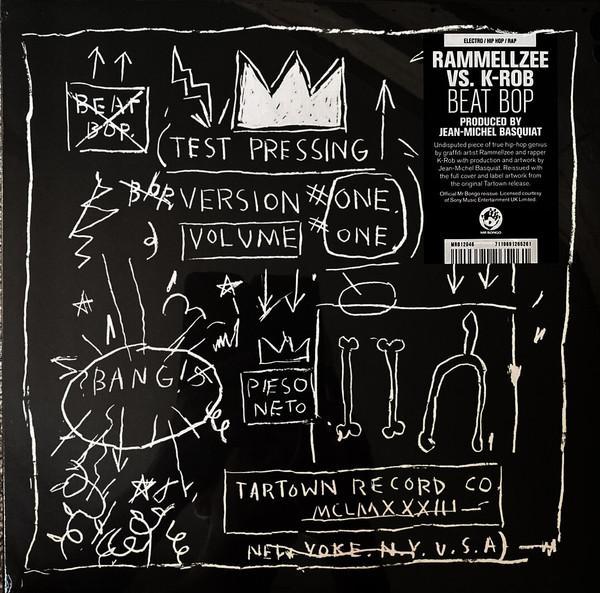 BEAT
BOP
(TEST PRESSING)
BOP VERSION #ONE.
VOLUME # ONE
BANG!
PIESO
NETO
TARTOWN RECORD CO.
MCLMXXXIII—
NEW YOKE. N.Y. U.S.A)
ELECTRO / HIP HOP / RAP
RAMMELLZEE
VS. K-ROB
BEAT BOP
PRODUCED BY
JEAN-MICHEL BASQUIAT
Undisputed piece of true hip-hop genius
by graffiti artist Rammellzee and rapper
K-Rob with production and artwork by
Jean-Michel Basquiat. Reissued with
the full cover and label artwork from
the original Tartown release.
Official Mr Bongo reissue. Licensed courtesy
of Sony Music Entertainment UK Limited.
MR BONGO
MRB12046 7119691265261